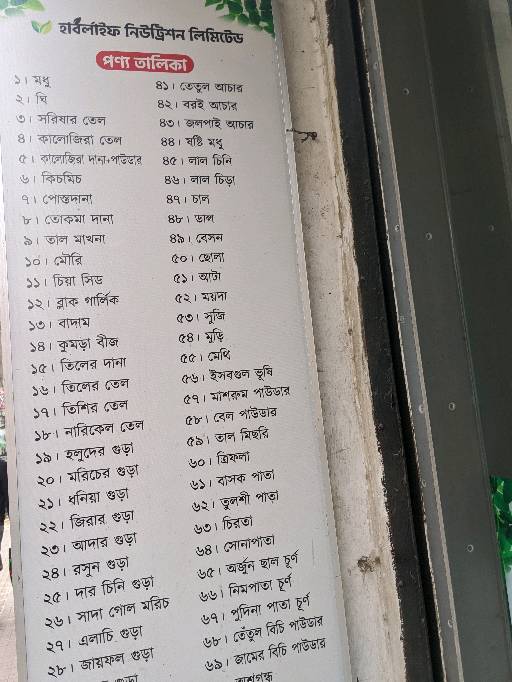 হার্বলাইফ নিউট্রিশন লিমিটেড
পণ্য তালিকা
১। মধু
২। ঘি
৩। সরিষার তেল
৪। কালোজিরা তেল
৫। কালোজিরা দানা+পাউডার
৬। কিচমিচ
৭। পোস্তদানা
৮। তোকমা দানা
৯। তাল মাখনা
১০। মৌরি
১১। চিয়া সিড
১২। ব্লাক গার্লিক
১৩। বাদাম
১৪। কুমড়া বীজ
১৫। তিলের দানা
১৬। তিলের তেল
১৭। তিশির তেল
১৮। নারিকেল তেল
১৯। হলুদের গুড়া
২০। মরিচের গুড়া
২১। ধনিয়া গুড়া
২২। জিরার গুড়া
২৩। আদার গুড়া
২৪। রসুন গুড়া
২৫। দার চিনি গুড়া
২৬। সাদা গোল মরিচ
২৭। এলাচি গুড়া
২৮। জায়ফল গুড়া
৪১। তেতুল আচার
৪২। বরই আচার
৪৩। জলপাই আচার
৪৪। ষষ্টি মধু
৪৫। লাল চিনি
৪৬। লাল চিড়া
৪৭। চাল
৪৮। ডাল
৪৯। বেসন
৫০। ছোলা
৫১। আটা
৫২। ময়দা
৫৩। সুজি
৫৪। মুড়ি
৫৫। মেথি
৫৬। ইসবগুল ভূষি
৫৭। মাশরুম পাউডার
৫৮। বেল পাউডার
৫৯। তাল মিছরি
৬০। ত্রিফলা
৬১। বাসক পাতা
৬২। তুলসী পাতা
৬৩। চিরতা
৬৪। সোনাপাতা
৬৫। অর্জুন ছাল চূর্ণ
৬৬। নিমপাতা চূর্ণ
৬৭। পুদিনা পাতা চূর্ণ
৬৮। তেঁতুল বিচি পাউডার
৬৯। জামের বিচি পাউডার